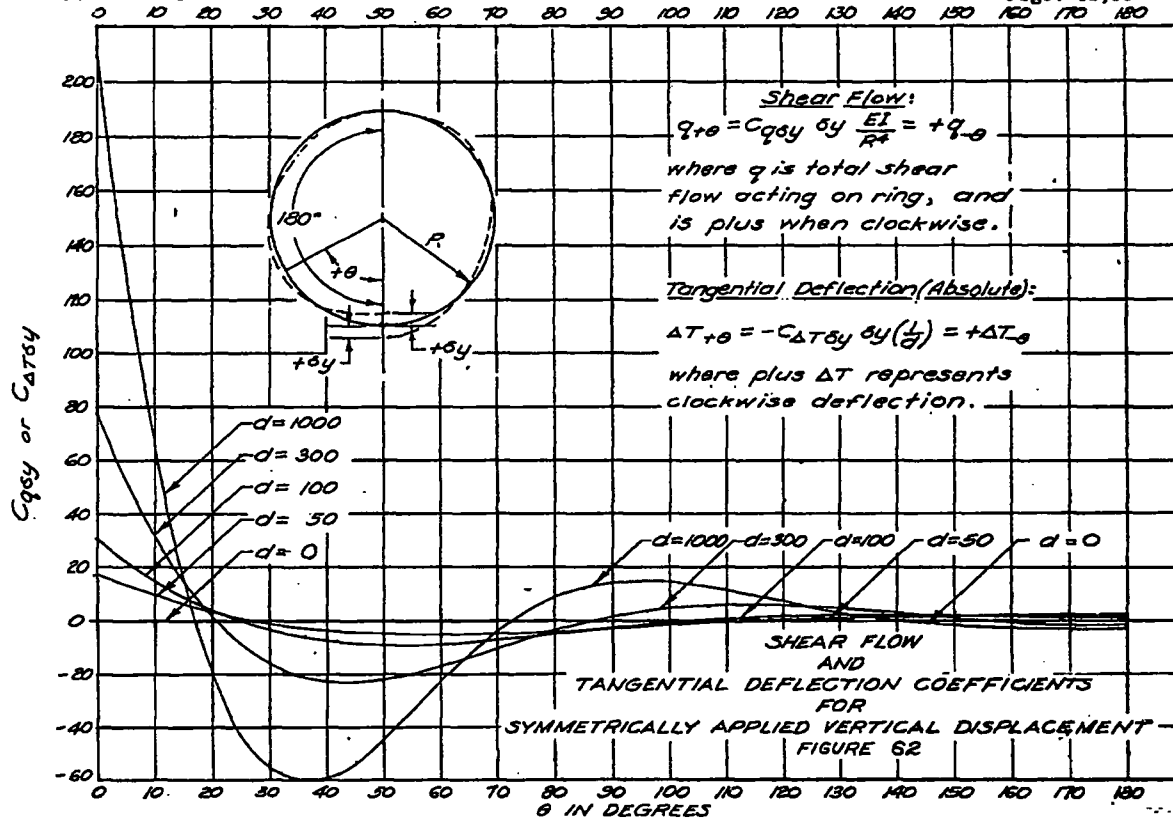 0 10 20 30 40 50 60 70 80 90 100 110 120 130 140 150 160 170 180
200
180
160
140
120
100
80
60
40
20
0
-20
-40
-60
C_qδy or C_ΔTδy
180°
R
+θ
+δy
+δy
Shear Flow:
q_+θ = C_qδy δy EI/R⁴ = +q_-θ
where q is total shear
flow acting on ring, and
is plus when clockwise.
Tangential Deflection (Absolute):
ΔT_+θ = -C_ΔTδy δy(1/d) = +ΔT_-θ
where plus ΔT represents
clockwise deflection.
d=1000
d=300
d=100
d=50
d=0
d=1000 d=300 d=100 d=50 d=0
SHEAR FLOW
AND
TANGENTIAL DEFLECTION COEFFICIENTS
FOR
SYMMETRICALLY APPLIED VERTICAL DISPLACEMENT
FIGURE 62
0 10 20 30 40 50 60 70 80 90 100 110 120 130 140 150 160 170 180
θ IN DEGREES